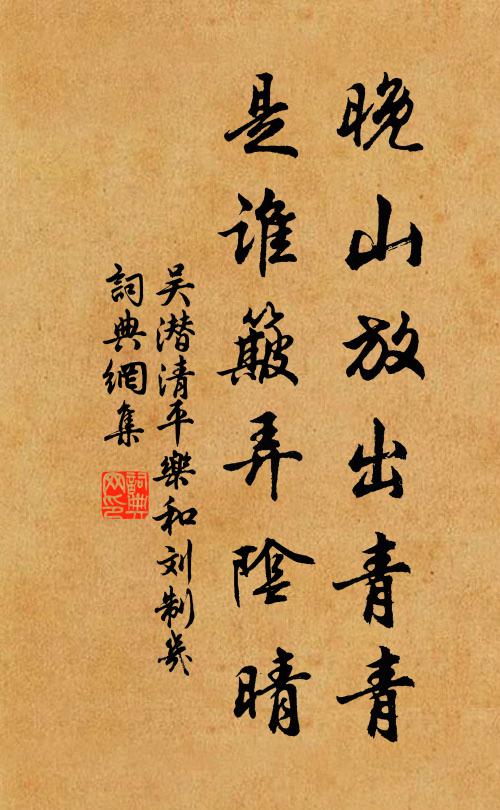 晚山放出青青
是谁簸弄陰晴
吴潜清平樂和刘制幾
詞典網集
詞典網印